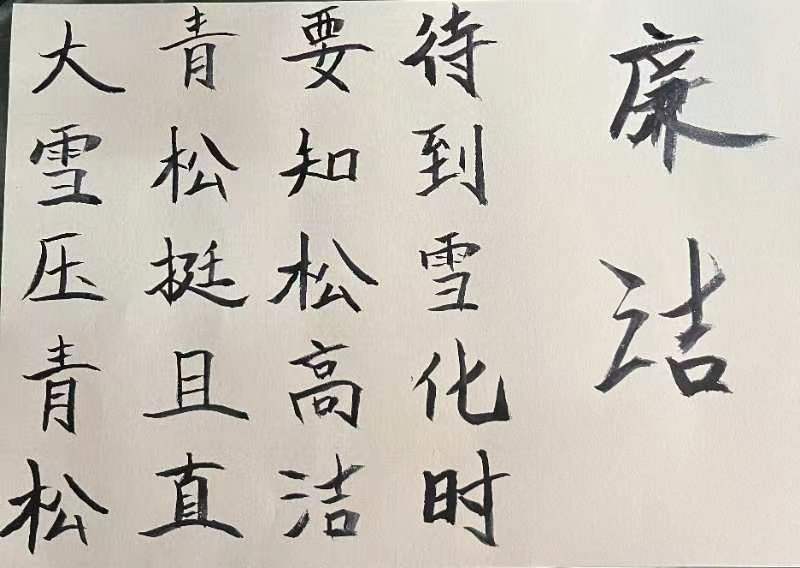 廉洁
大雪压青松
青松挺且直
要知松高洁
待到雪化时